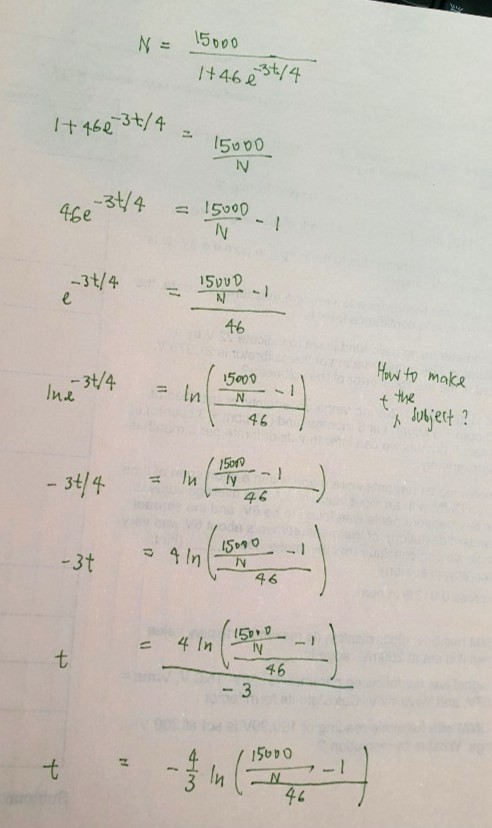 N = 15000 / (1+46e^-3t/4)
1+46e^-3t/4 = 15000/N
46e^-3t/4 = 15000/N - 1
e^-3t/4 = (15000/N - 1)/46
ln e^-3t/4 = ln((15000/N - 1)/46)
How to make
t the
subject?
-3t/4 = ln((15000/N - 1)/46)
-3t = 4 ln((15000/N - 1)/46)
t = 4 ln((15000/N - 1)/46) / -3
t = -4/3 ln((15000/N - 1)/46)